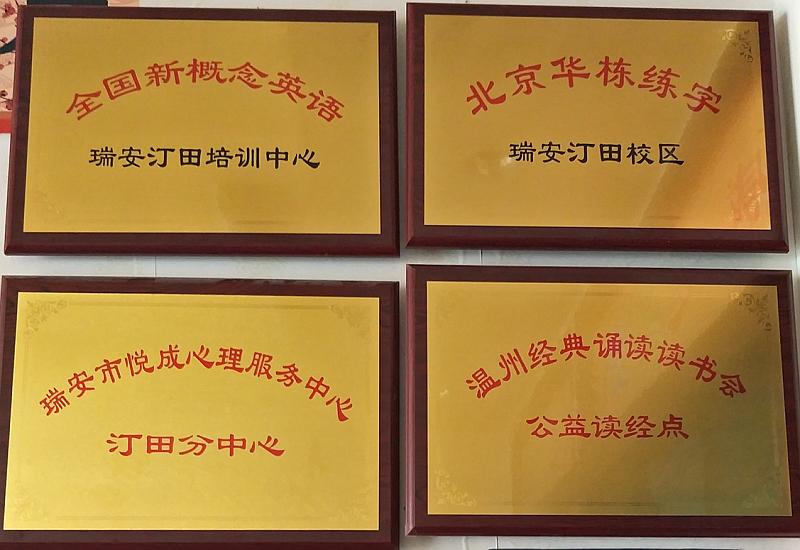 全国新概念英语
瑞安汀田培训中心
北京华栋练字
瑞安汀田校区
瑞安市悦成心理服务中心
汀田分中心
温州经典诵读读书会
公益读经点